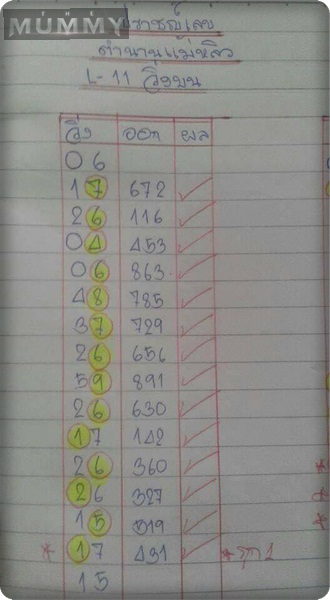 MUMMY
ปราชญ์เลข
ตำนานแม่หลิว
L-11 วิ่งบน
วิ่ง ออก ผล
06
17 672
26 116
04 453
06 863
48 785
37 729
26 656
59 891
26 630
17 142
26 360
26 327
15 519
17 431
15